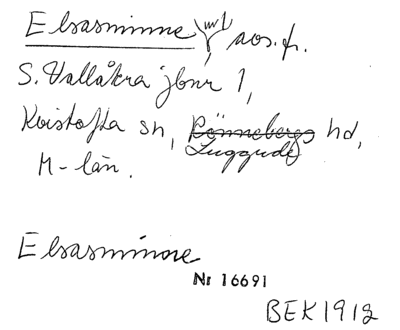 Elsasminne urt aos.fr.
S. Vallåkra jbnr 1,
Kvistofta sn, Rönnebergs hd,
Luggude
M-län.
Elsasminne
Nr 16691
BEK1912